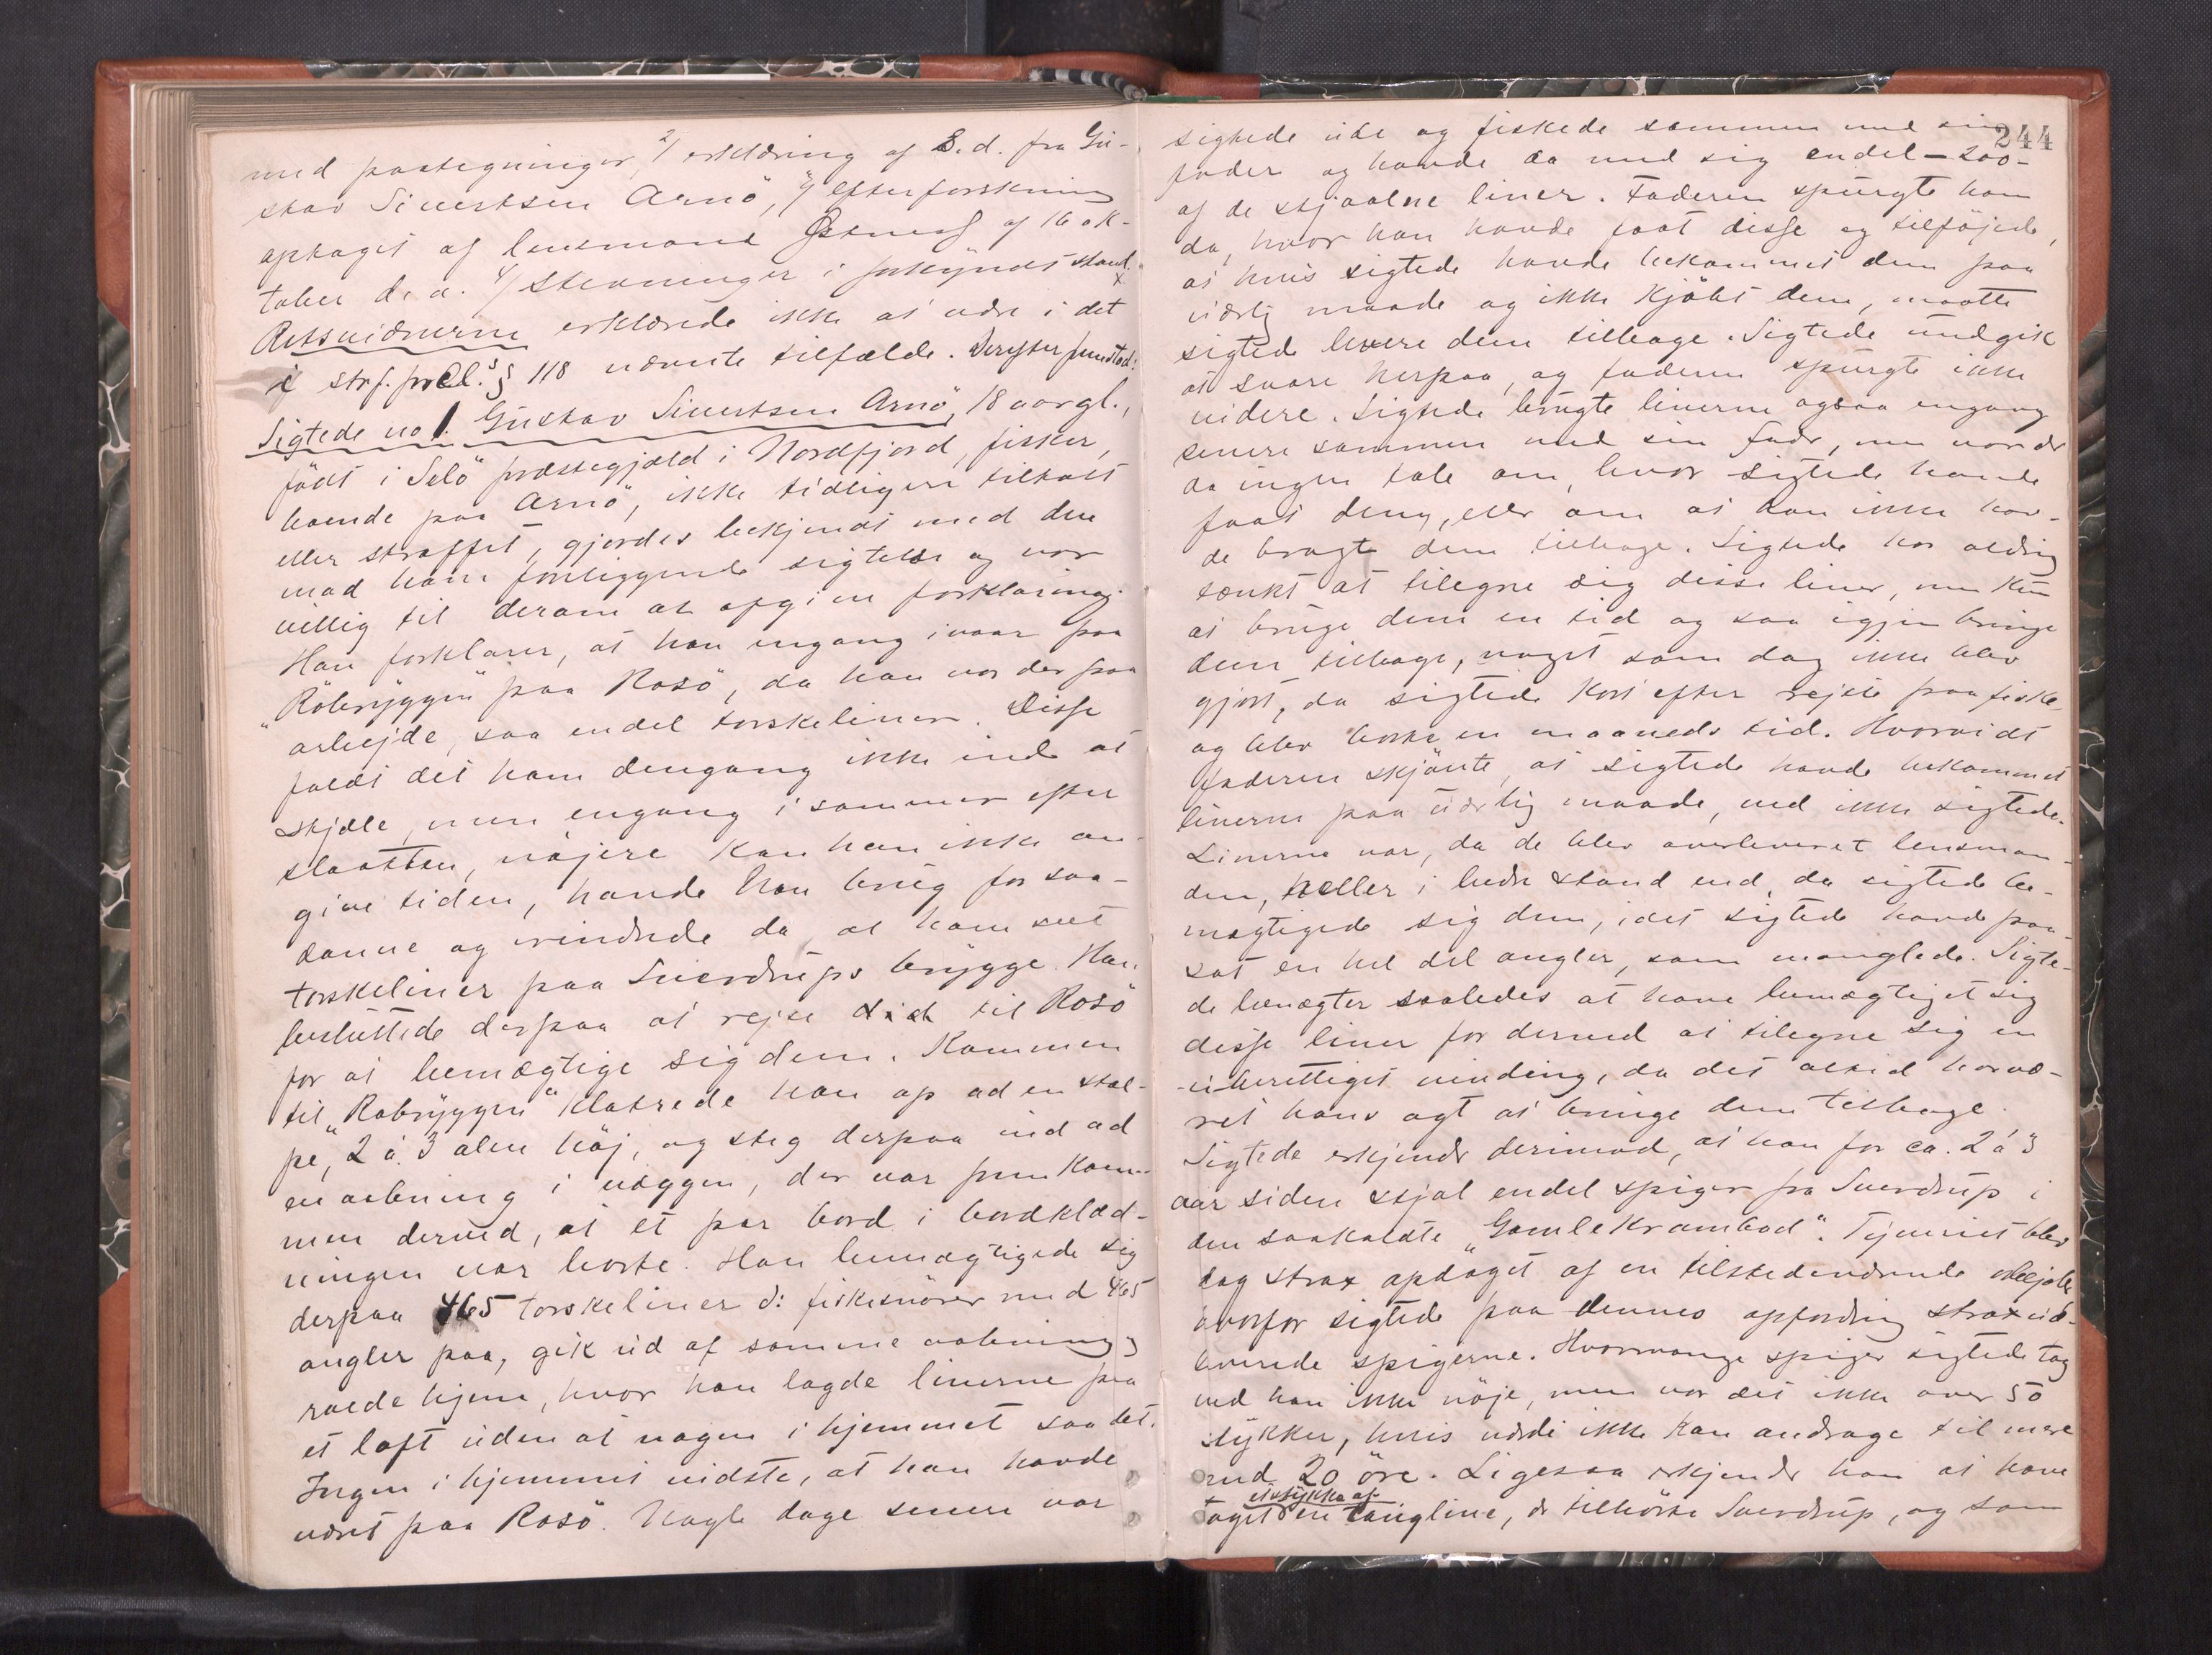 med paategninger, 2/ erklæring af s. d. fra Gu-
stav Sivertsen Arnö, 3/ efterforskning
optaget af lensmand Östness af 16 ok-
tober d. a. 4/ stevninger i forkyndt stand.
Retsvidnerne erklærede ikke at være i det
i strf. prcl.s § 118 nævnte tilfælde. Derefter fremstod:
Sigtede no 1. Gustav Sivertsen Arnö, 18 aar gl.,
født i Selö præstegjæld i Nordfjord, fisker,
boende paa Arnö, ikke tidligere tiltalt
eller straffet, gjordes bekjendt med den
mod ham foreliggende sigtelse og var
villig til derom at afgive forklaring.
Han forklarer, at han engang ivaar paa
"Röbryggen" paa Rosö, da han var der paa
arbejde, saa endel torskeliner. Disse
faldt det ham dengang ikke ind at
stjæle, men engang i sommer efter
slaatten, nöjere kan han ikke an-
give tiden, havde han brug for saa-
danne og erindrede da at have seet
torskeliner paa Sverdrups brygge. Han
besluttede derpaa at rejse til Rosö
for at bemægtige sig dem. Kommen
til "Robryggen" klatrede han op ad en stol-
pe, 2 à 3 alen höj, og steg derpaa ind ad
en aabning i væggen, der var frem kom-
men derved, at et par bord i bordklæd-
ningen var borte. Han bemægtigede sig
derpaa 465 torskeliner ɔ: fiskesnörer med 465
angler paa, gik ud af samme aabning og
roede hjem, hvor han lagde linerne paa
et loft uden at nogen i hjemmet saa det.
Ingen i hjemmet vidste, at han havde
været paa Rosö. Nogle dage senere var
244
sigtede ude og fiskede sammen med sin
fader og havde da med sig endel – 200 –
af de stjaalne liner. Faderen spurgte ham
da, hvor han havde faat disse og tilföjede,
at hvis sigtede havde bekommet dem paa
uærlig maade og ikke kjöbt dem, maatte
sigtede levere dem tilbage. Sigtede undgik
at svare herpaa, og faderen spurgte ikke
videre. Sigtede brugte linerne ogsaa engang
senere sammen med sin fader, men var der
da ingen tale om, hvor sigtede havde
faat dem, eller om at han ikke hav-
de bragt dem tilbage. Sigtede har aldrig
tænkt at tilegne sig disse liner, men kun
at bruge dem en tid og saa igjen bringe
dem tilbage, noget som dog ikke blev
gjort, da sigtede kort efter rejste paa fiske
og blev borte en maaneds tid. Hvorvidt
faderen skjönte, at sigtede havde bekommet
linerne paa uærlig maade, ved ikke sigtede.
Linerne var, da de blev overleveret lensman-
den, heller i bedre stand end, da sigtede be-
mægtigede sig dem, idet sigtede havde paa-
sat en hel del angler, som manglede. Sigte-
de benægter saaledes at have bemægtiget sig
disse liner for derved at tilegne sig en
uberettiget vinding, da det altid har væ-
ret hans agt at bringe dem tilbage.
Sigtede erkjender derimod, at han for ca. 2 á 3
aar siden stjal endel spiger fra Sverdrup i
den saakaldte "Gamle Krambod". Tyveriet blev
dog strax opdaget af en tilstedeværende
hvorfor sigtede paa dennes opfordring strax ud-
leverede spigerne. Hvormange spiger sigtede tog
ved han ikke nöje, men var det ikke over 50
stykker, hvis værdi ikke kan andrage til mere
end 20 öre. Ligesaa erkjender han at have
et stykke af
taget en tougline, der tilhörte Sverdrup, og som